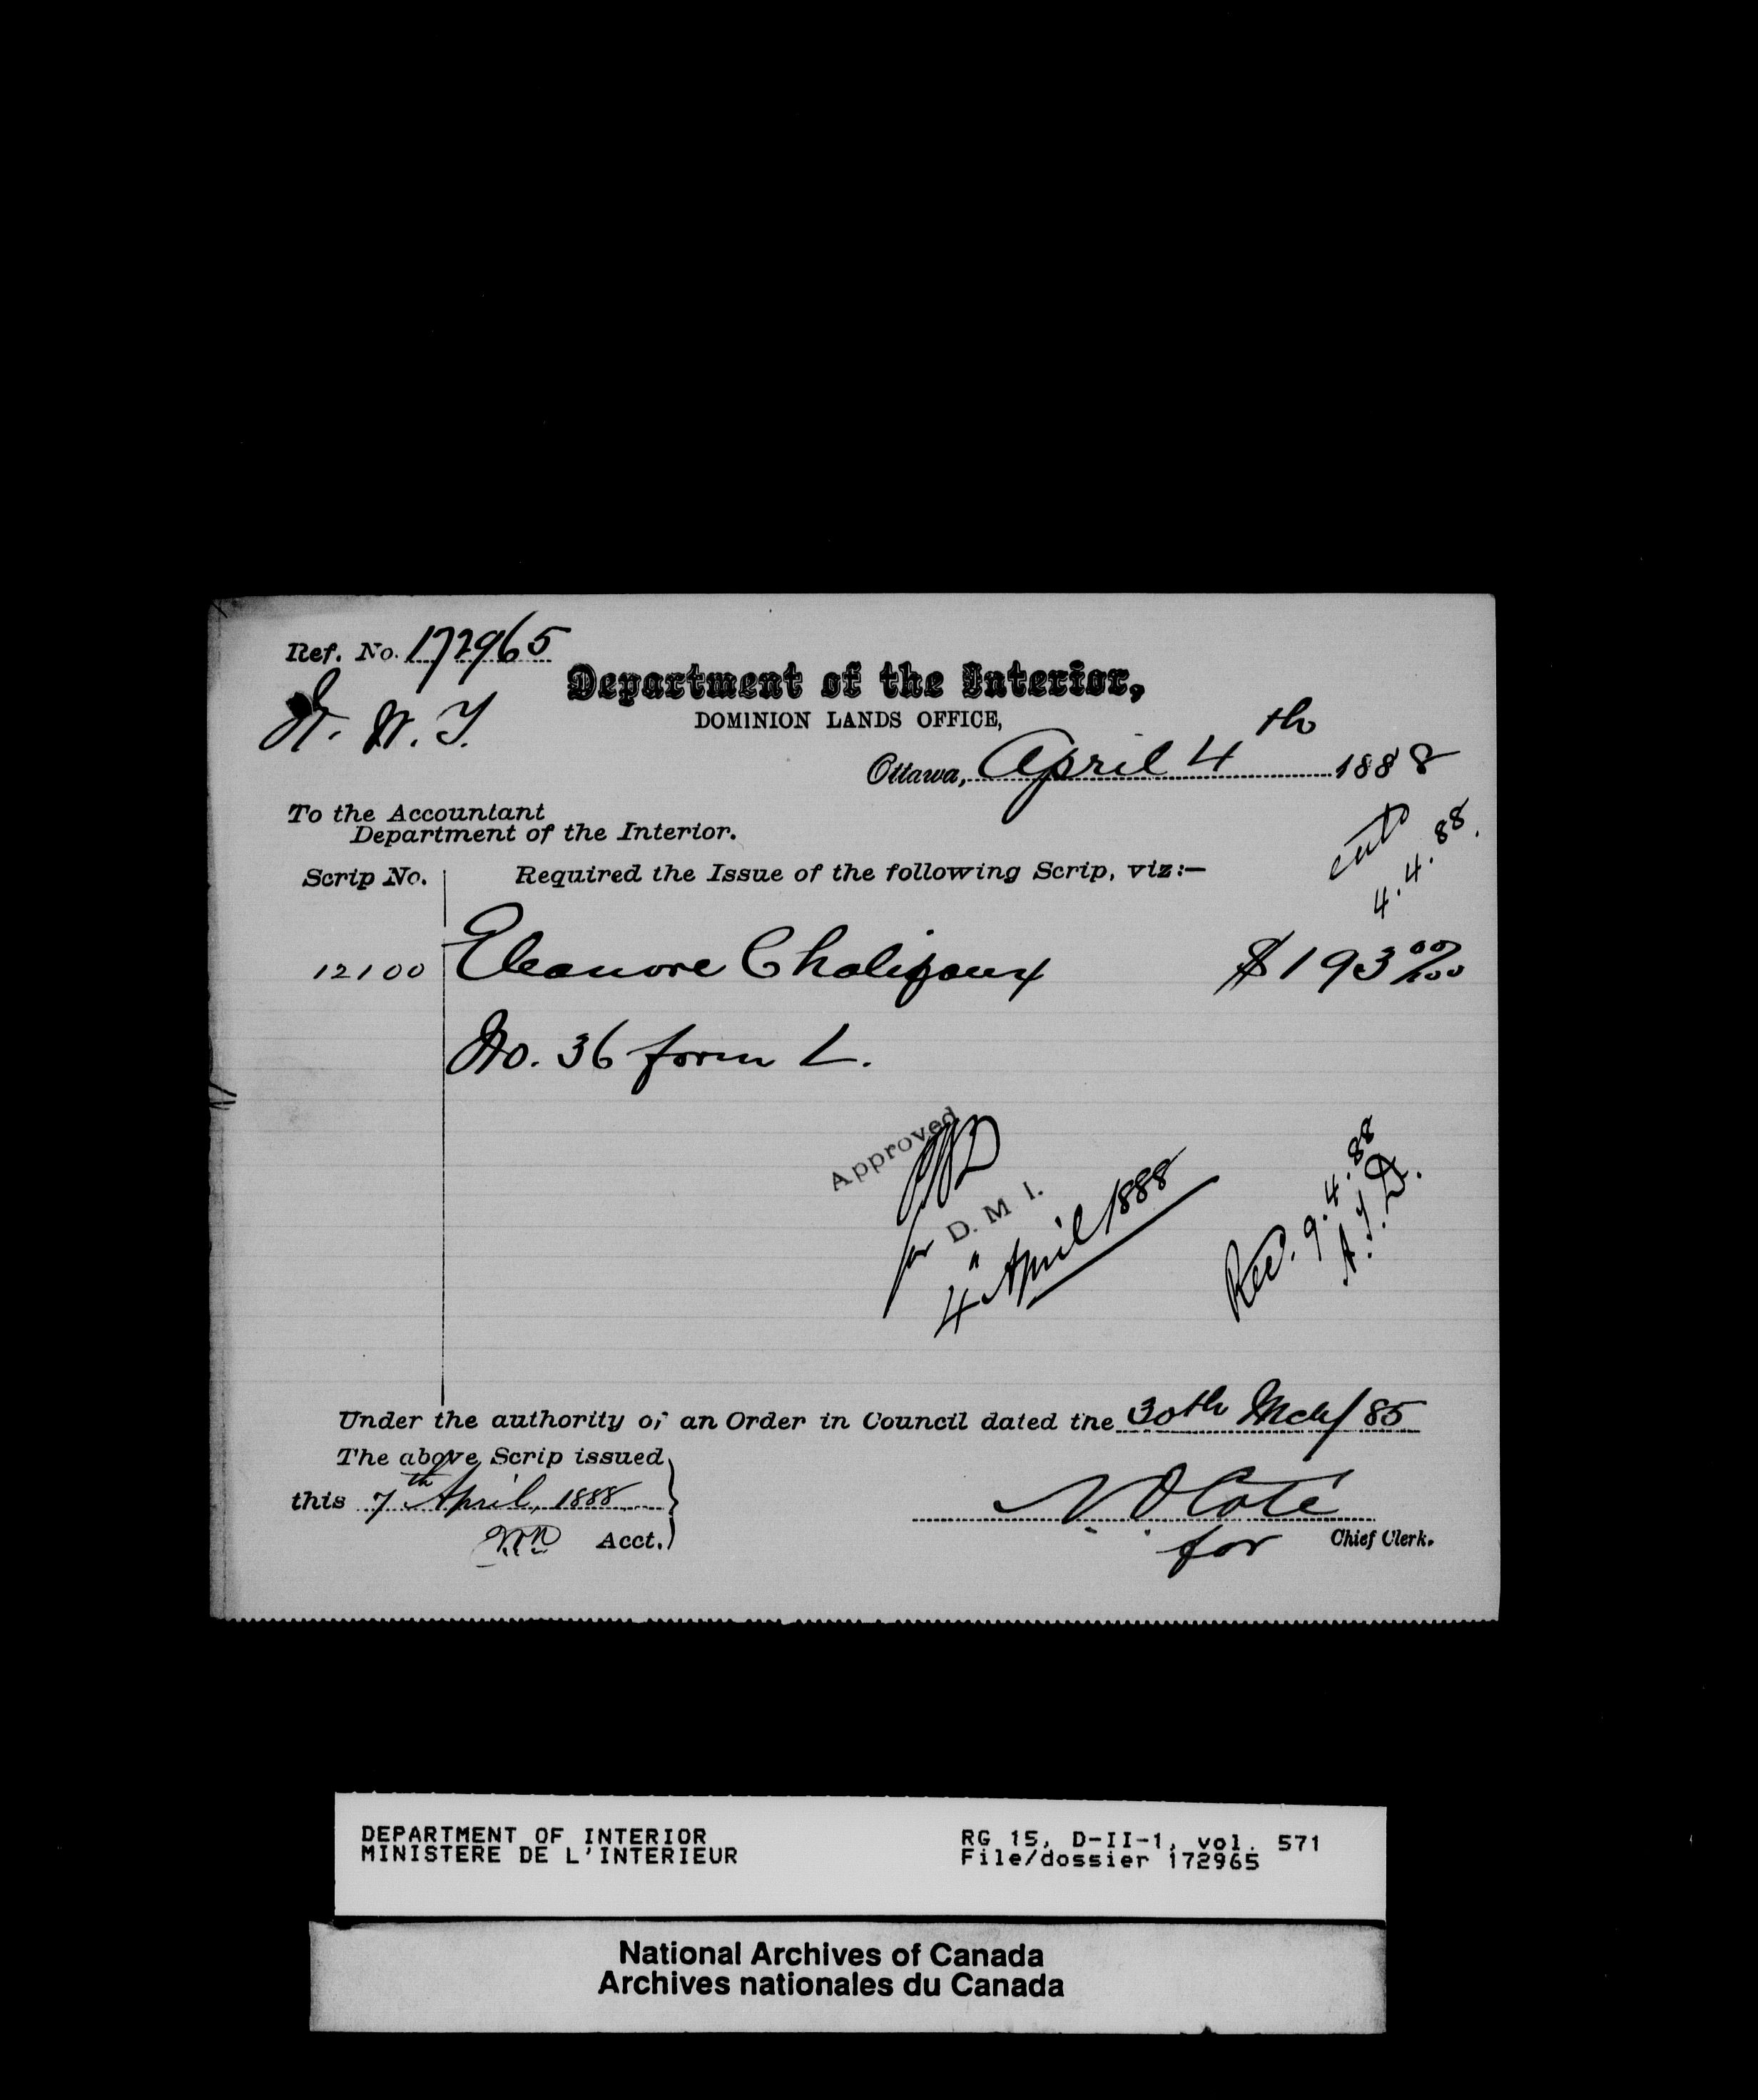 Ref. No. 172965
N. W. T.
Department of the Interior,
DOMINION LANDS OFFICE,
Ottawa, April 4th 1888
To the Accountant
Department of the Interior.
4.4.88.
Scrip No. Required the Issue of the following Scrip, viz:—
12100 Eleanore Chalifoux $193 00/100
No. 36 form L.
Approved
for D. M. I.
4" April 1888
Rec. 9.4.88
A.Y.D.
Under the authority of an Order in Council dated the 30th Mch/85
The above Scrip issued
this 7th April, 1888
Acct.
N. O. Coté
for Chief Clerk.
DEPARTMENT OF INTERIOR
MINISTERE DE L'INTERIEUR
RG 15, D-II-1, vol. 571
File/dossier 172965
National Archives of Canada
Archives nationales du Canada